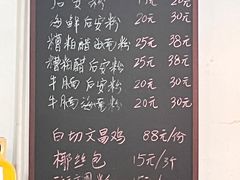 后安粉 20元
海鲜后安粉 20元 30元
糟粕醋海南粉 25元 38元
糟粕醋后安粉 25元 38元
牛腩后安粉 20元 30元
牛腩海南粉 20元 30元
白切文昌鸡 88元/份
椰丝包 15元/3个